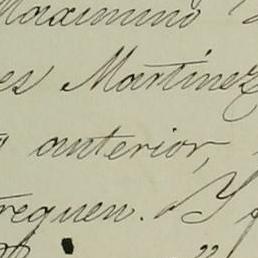 Maximino
es Martinez
anterior,
frequen. Y